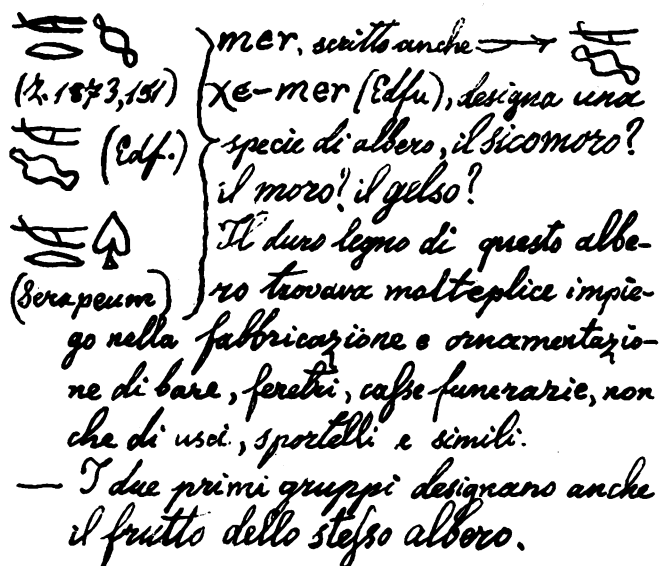 mer, scritto anche
(Z. 1873, 151) χe-mer (Edfu), designa una
(Edf.) specie di albero, il sicomoro?
il moro? il gelso?
Il duro legno di questo albe-
(Serapeum) ro trovava molteplice impie-
go nella fabbricazione e ornamentazio-
ne di bare, feretri, caſse funerarie, non
che di usci, sportelli e simili.
— I due primi gruppi designano anche
il frutto dello steſso albero.